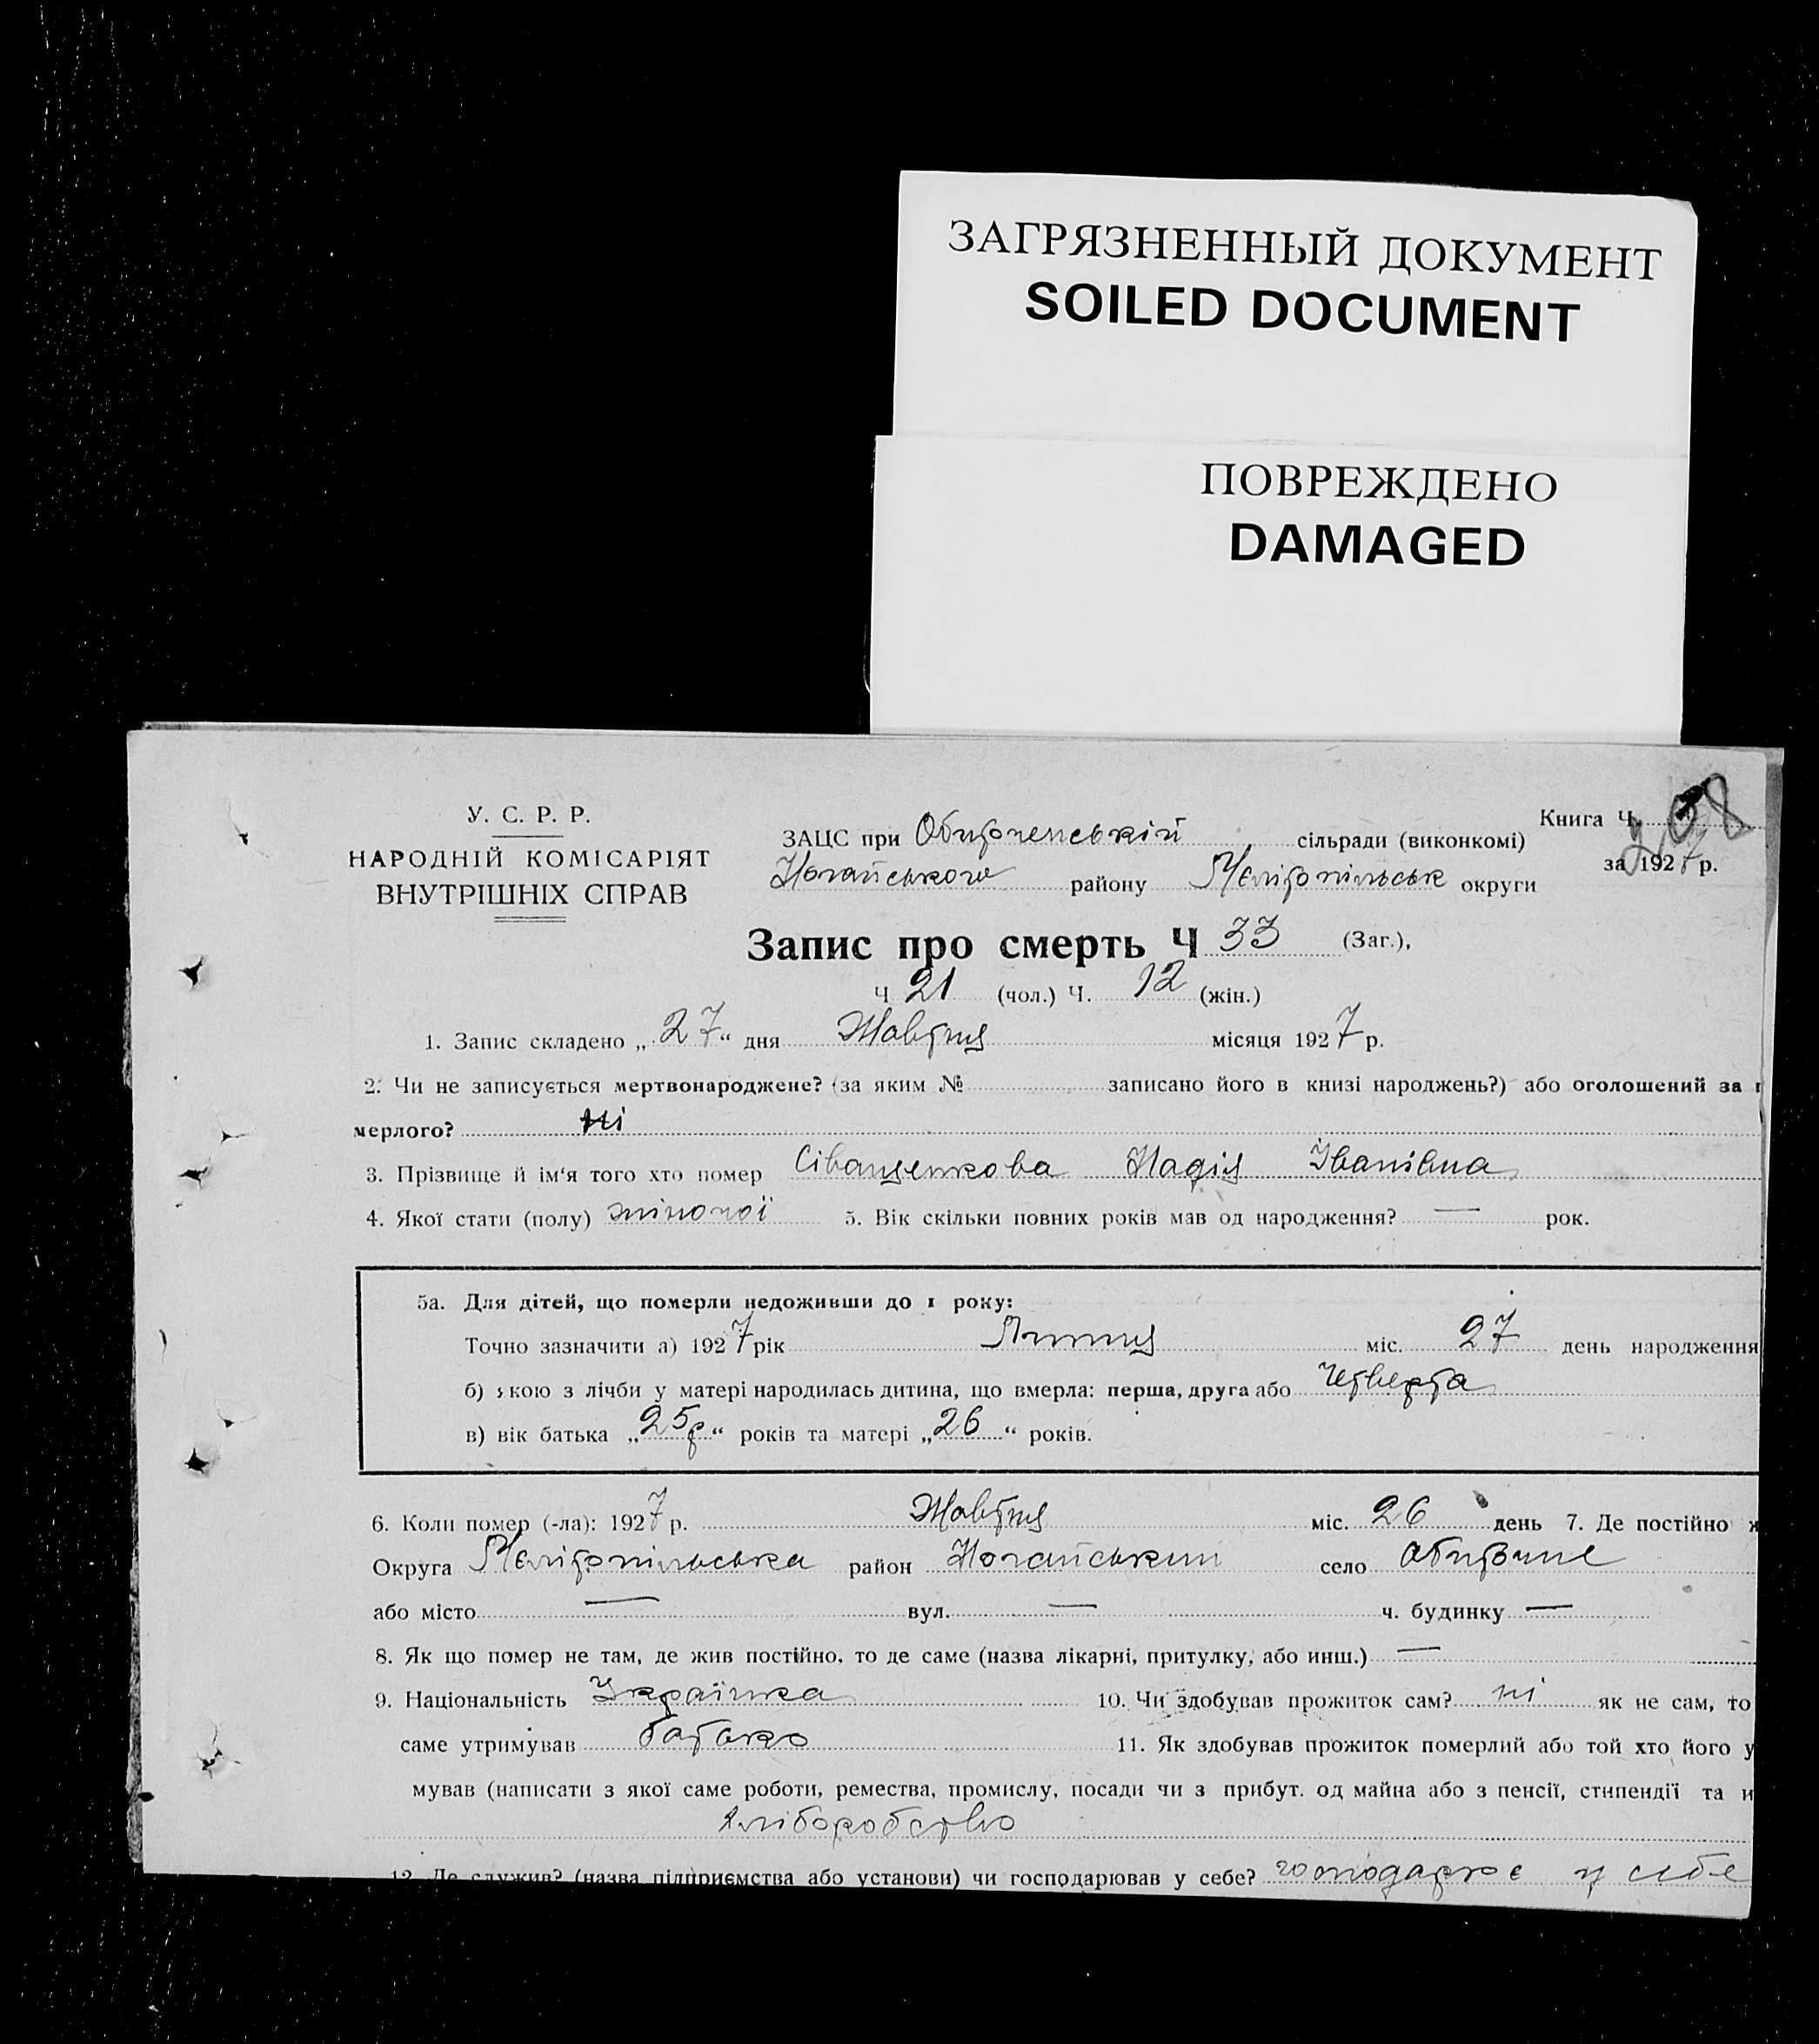 ЗАГРЯЗНЕННЫЙ ДОКУМЕНТ
SOILED DOCUMENT
ПОВРЕЖДЕНО
DAMAGED
У. С. Р. Р.
НАРОДНІЙ КОМІСАРІЯТ
ВНУТРІШНІХ СПРАВ
Книга Ч. 208
за 1927 р.
ЗАЦС при Обиточенській сільради (виконкомі)
Ногайського району Мелітопільськ округи
Запис про смерть Ч 33 (Заг.),
Ч 21 (чол.) Ч. 12 (жін.)
1. Запис складено „27“ дня Жовтня місяця 1927 р.
2. Чи не записується мертвонароджене? (за яким № записано його в книзі народжень?) або оголошений за
мерлого? ні
3. Прізвище й ім‘я того хто помер Надія Іванівна
4. Якої стати (полу) жіночої 5. Вік скільки повних років мав од народження? — рок.
5а. Для дітей, що померли недоживши до 1 року:
Точно зазначити а) 1927 рік Липня міс. 27 день народження
б) якою з лічби у матері народилась дитина, що вмерла: перша, друга або четверта
в) вік батька „25р“ років та матері „26“ років.
6. Коли помер (-ла): 1927 р. Жовтня міс. 26 день 7. Де постійно ж
Округа Мелітопільська район Ногайський село Обиточне
або місто — вул. — ч. будинку —
8. Як що помер не там, де жив постійно, то де саме (назва лікарні, притулку, або инш.) —
9. Національність Українка 10. Чи здобував прожиток сам? ні як не сам, то
саме утримував батько 11. Як здобував прожиток померлий або той хто його у
мував (написати з якої саме роботи, ремества, промислу, посади чи з прибут. од майна або з пенсії, стипендії та и
хліборобство
12. Де служив? (назва підприємства або установи) чи господарював у себе? господарює у себе